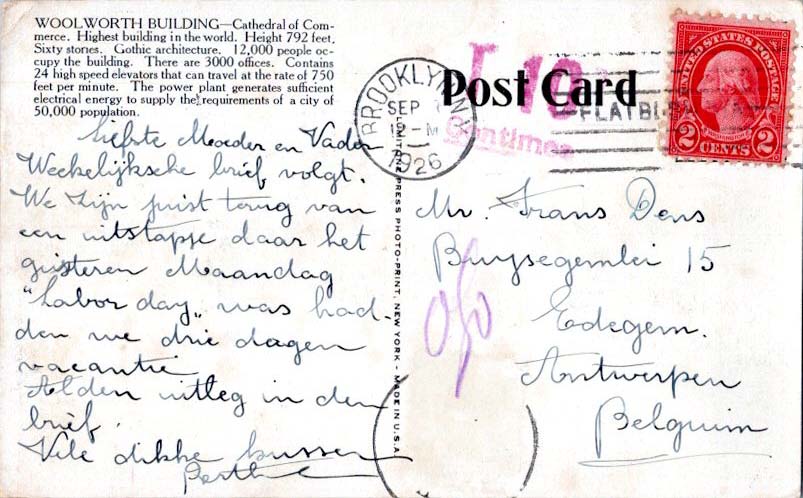 WOOLWORTH BUILDING—Cathedral of Com-
merce. Highest building in the world. Height 792 feet.
Sixty stories. Gothic architecture. 12,000 people oc-
cupy the building. There are 3000 offices. Contains
24 high speed elevators that can travel at the rate of 750
feet per minute. The power plant generates sufficient
electrical energy to supply the requirements of a city of
50,000 population.
Liefste Moeder en Vader
Wekelijksche brief volgt.
We zijn juist terug van
een uitstapje daar het
gisteren Maandag
"Labor day" was had-
den we drie dagen
vacantie
Alden uitleg in den
brief.
Vele dikke kussen
PRESS PHOTO-PRINT, NEW YORK - MADE IN U.S.A.
Post Card
T 10
Centimes
BROOKLYN, N.Y.
SEP
12-M
1926
FLATBU
UNITED STATES POSTAGE
2 CENTS 2
Mr. Frans Dens
15
Edegem.
Antwerpen
Belguim